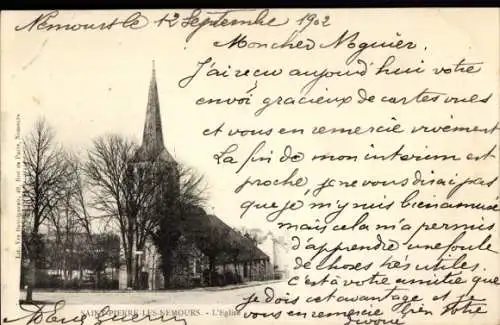 Nemours le 12 Septembre 1902
Mon cher Noguier.
J'ai reçu aujourd'hui votre
envoi gracieux de cartes vues
et vous en remercie vivement
La fin de mon interim est
proche, je ne vous dirai pas
que je m'y suis bien amusé
mais cela m'a permis
d'apprendre une foule
de choses très utiles.
C'est à votre amitié que
je dois cet avantage et je
vous en remercie bien
votre
SAINT-PIERRE-LES-NEMOURS. - L'Eglise